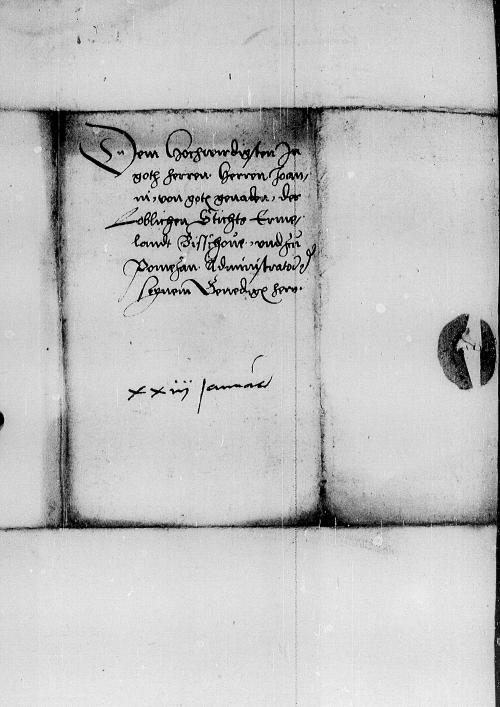 Dem Hochwirdigsten In
goth herren herren Joan,
ni, von gots genaden, des
Loblichen Stichts Erme,
landt Bisschoue, und zu
Pomesan Administator
seynem Genedigen hern.
xxiij Januarii